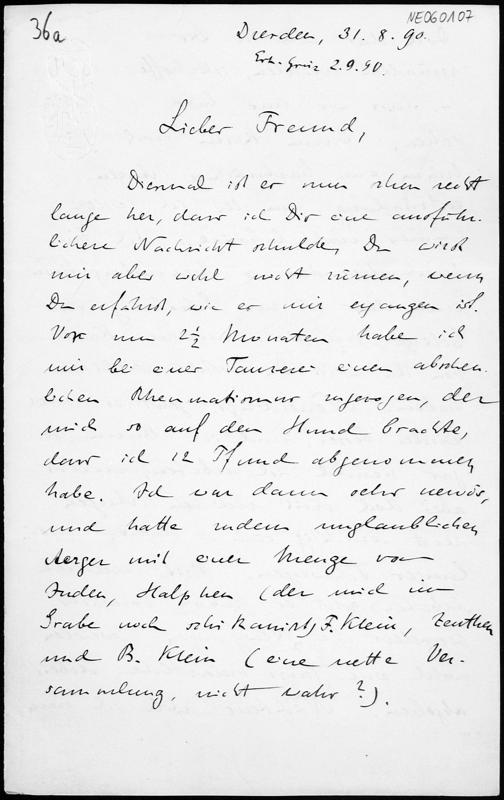 36a
NE060107
Dresden, 31. 8. 90.
Erh. Graz 2.9.90.
Lieber Freund,
Diesmal ist es nun schon recht
lange her, dass ich Dir eine ausführ-
lichere Nachricht schulde, Du wirst
mir aber wohl nicht zürnen, wenn
Du erfährst, wie es mir ergangen ist.
Vor nun 2½ Monaten habe ich
mir bei einer Tanzerei einen abscheu-
lichen Rheumatismus zugezogen, der
mich so auf den Hund brachte,
dass ich 12 Pfund abgenommen
habe. Ich war dann sehr nervös,
und hatte zudem unglaublichen
Aerger mit einer Menge von
Juden, Halphen (der mich im
Grabe noch schikanirt), F. Klein, Zeuthen
und B. Klein (eine nette Ver-
sammlung, nicht wahr?).